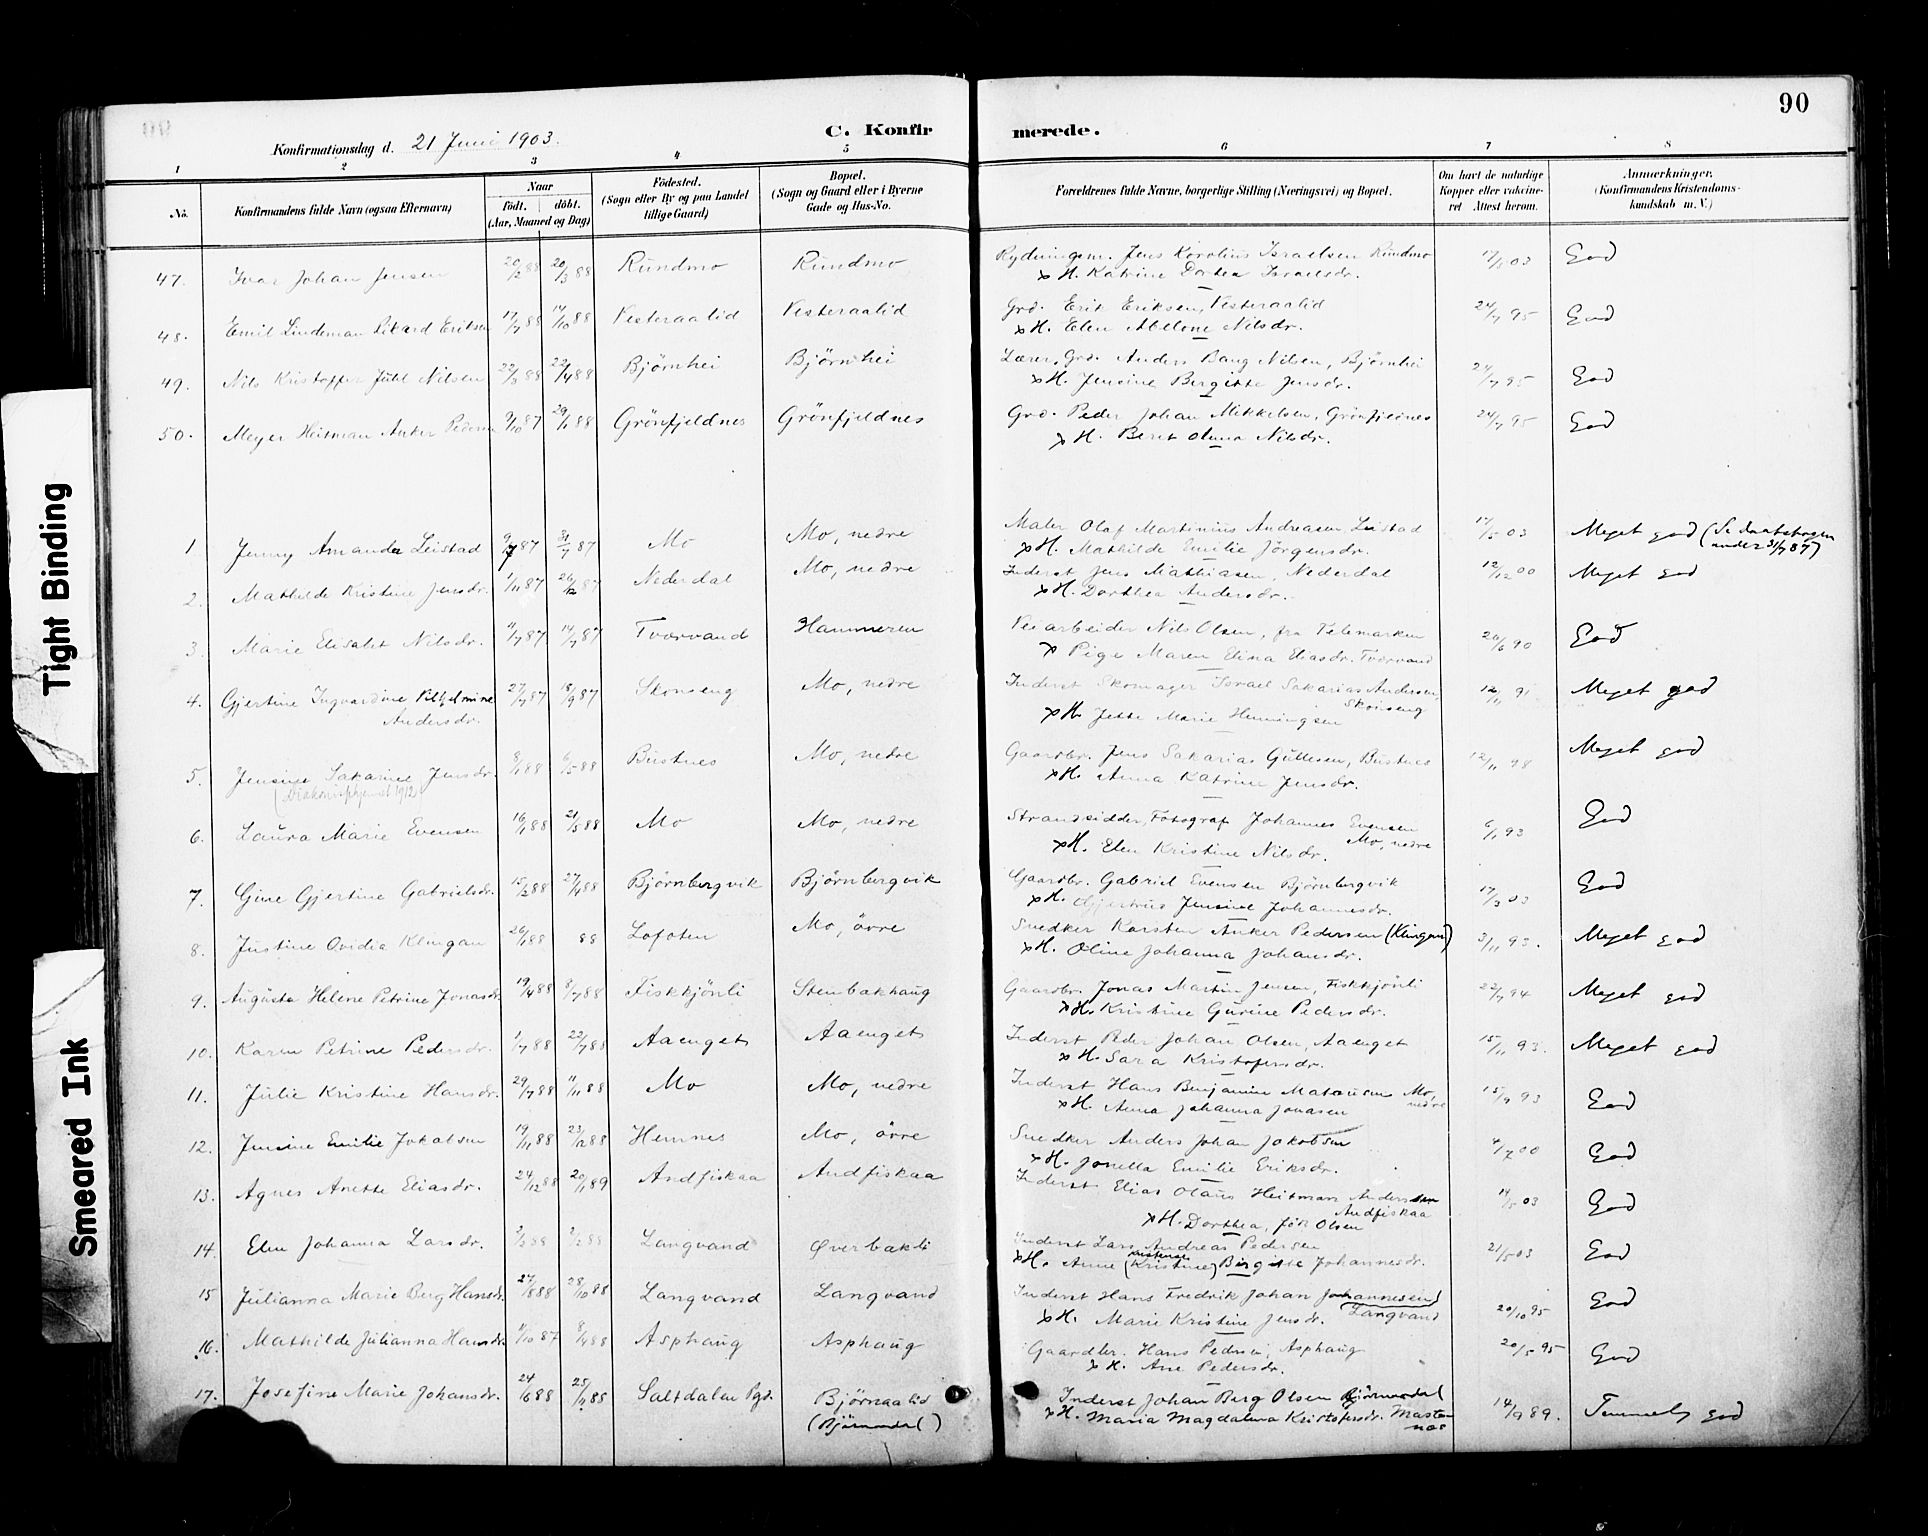 90
C. Konfirmerede.
Konfirmationsdag d. 21 Juni 1903.
1 2 3 4 5 6 7 8
No. Konfirmandens fulde Navn (ogsaa Efternavn) Naar Födt. döbt. (Aar, Maaned og Dag) Födested. (Sogn eller By og paa Landet tillige Gaard) Bopæl. (Sogn og Gaard eller i Byerne Gade og Hus-No. Forældrenes fulde Navne, borgerlige Stilling (Næringsvei) og Bopæl. Om havt de naturlige Kopper eller vakcineret Attest herom. Anmærkninger. (Konfirmandens Kristendomskundskab m. V.)
47. Ivar Johan Jensen 20/2 88 20/3 88 Rundmo Rundmo Rydningsm. Jens Karolius Israelsen Rundmo 17/5 03 God
x H. Katrine Dortea Israelsdr.
48. Emil Lindeman Rikard Eriksen 17/7 88 14/10 88 Vesteraalid Vesteraalid Grd. Erik Eriksen, Vesteraalid 24/7 95 God
x H. Elen Abelone Nilsdr.
49. Nils Kristoffer Juhl Nilsen 22/3 88 22/4 88 Björnhei Björnhei Lærer, Grd. Anders Bang Nilsen, Björnhei 24/7 95 God
x H. Jensine Bergitte Jensdr.
50. Meyer Heitman Anker Pedersen 9/10 87 29/1 88 Grönfjeldnes Grönfjeldnes Grd. Peder Johan Mikkelsen, Grönfjeldnes 24/7 95 God
x H. Beret Olina Nilsdr.
1 Jenny Amanda Leistad 9/7 87 31/7 87 Mo Mo, nedre Maler Olaf Martinius Andreasen Leistad 17/5 03 Meget god (Se daabsbogen under 31/7 87)
x H. Mathilde Emilie Jörgensdr.
2. Mathilde Kristine Jensdr. 1/11 87 26/12 87 Nederdal Mo, nedre Inderst Jens Mathiasen, Nederdal 12/12 00 Meget god
x H. Dorthea Andersdr.
3. Marie Elisabet Nilsdr. 11/7 87 14/7 87 Tværvand Hammeren Veiarbeider Nils Olsen, fra Telemarken 26/6 90 God
x Pige Maren Elina Eliasdr. Tværvand
4. Gjertine Ingvardine Vilhelmine Andersdr. 27/7 87 18/9 87 Skonseng Mo, nedre Inderst Skomager Israel Sakarias Andersen, Skonseng 12/11 91 Meget god
x H. Jette Marie Henningsen
5. Jensine Sakarine Jensdr. 8/1 88 6/5 88 Bustnes Mo, nedre Gaardbr. Jens Sakarias Guttesen, Bustnes 12/11 98 Meget god
x H. Anna Katrine Jensdr.
6. Laura Marie Evensen 16/1 88 21/5 88 Mo Mo, nedre Strandsidder, Fotograf Johannes Evensen Mo, nedre 6/1 93 God
x H. Elen Kristine Nilsdr.
7. Gine Gjertine Gabrielsdr. 15/2 88 27/4 88 Björnbergvik Björnbergvik Gaardbr. Gabriel Evensen Björnbergvik 17/3 03 God
x H. Gjertrus Jensine Johannesdr.
8. Justine Ovidia Klingan 26/1 88 88 Lofoten Mo, övre Snedker Karsten Anker Pedersen (Klingan) 3/11 93. Meget god
x H. Oline Johanna Johansdr.
9. Augusta Helene Petrine Jonasdr. 19/4 88 8/7 88 Fiskkjönli Stenbakhaug Gaardbr. Jonas Martin Jensen, Fiskkjönli 22/7 94 Meget god
x H. Kristine Gurine Pedersdr.
10. Karen Petrine Pedersdr. 1/7 88 22/7 88 Aaenget Aaenget Inderst Peder Johan Olsen, Aaenget 15/11 93. Meget god
x H. Sara Kristofersdr.
11. Julie Kristine Hansdr. 29/7 88 11/11 88 Mo Mo, nedre Inderst Hans Benjamin Mateusen Mo, nedre 15/7 93 God
x H. Anna Johanna Jonasen
12. Jensine Emilie Jakobsen 19/11 88 23/12 88 Hemnes Mo, övre Snedker Anders Johan Jakobsen 4/7 00 God
x H. Jonella Emilie Eriksdr.
13. Agnes Anette Eliasdr. 24/12 88 20/1 89 Andfiskaa Andfiskaa Inderst Elias Olaus Heitman Andersen Andfiskaa 14/5 03 God
x H. Dorthea, föd Olsen
14. Elen Johanna Larsdr. 88 88 Langvand Överbakli Inderst Lars Andreas Pedersen 21/5 03 God
x H. Anne (Kristine) Birgitte Johannesdr.
15 Julianna Marie Berg Hansdr. 27/8 88 28/10 88 Langvand Langvand Inderst Hans Fredrik Johan Johannessen Langvand 20/10 95 God
x H. Marie Kristine Jensdr.
16. Mathilde Julianna Hansdr. 11/10 87 8/4 88 Asphaug Asphaug Gaardbr. Hans Pedersen, Asphaug 20/5 95 God
x H. Ane Pedersdr.
17. Josefine Marie Johansdr. 24/6 88 25/ 88 Saltdalen Pgd. Björnaalid (Björnendal) Inderst Johan Berg Olsen Björnendal 14/9 89. Temmelig god
x H. Maria Magdalena Kristofersdr. Mastennæs
Tight Binding
Smeared Ink